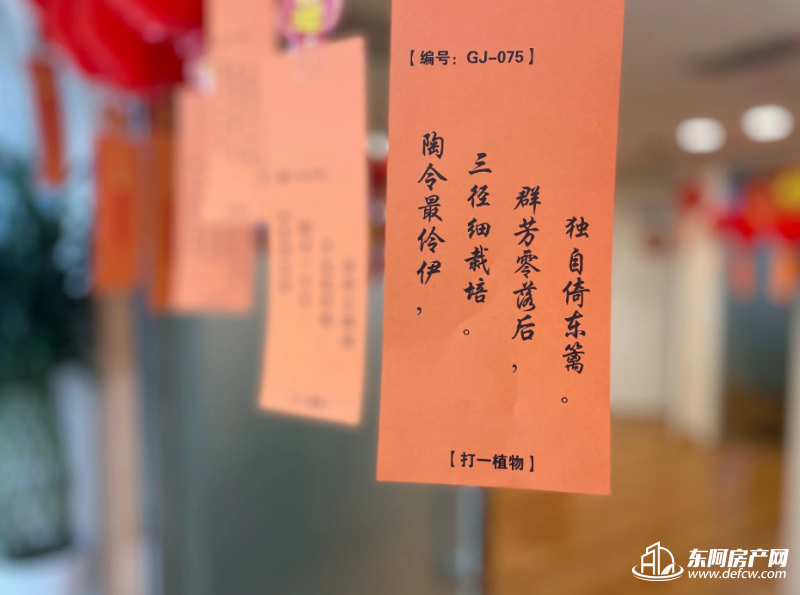 【编号：GJ-075】
陶令最伶伊，
三径细栽培。
群芳零落后，
独自倚东篱。
【打一植物】
东阿房产网
www.defcw.com